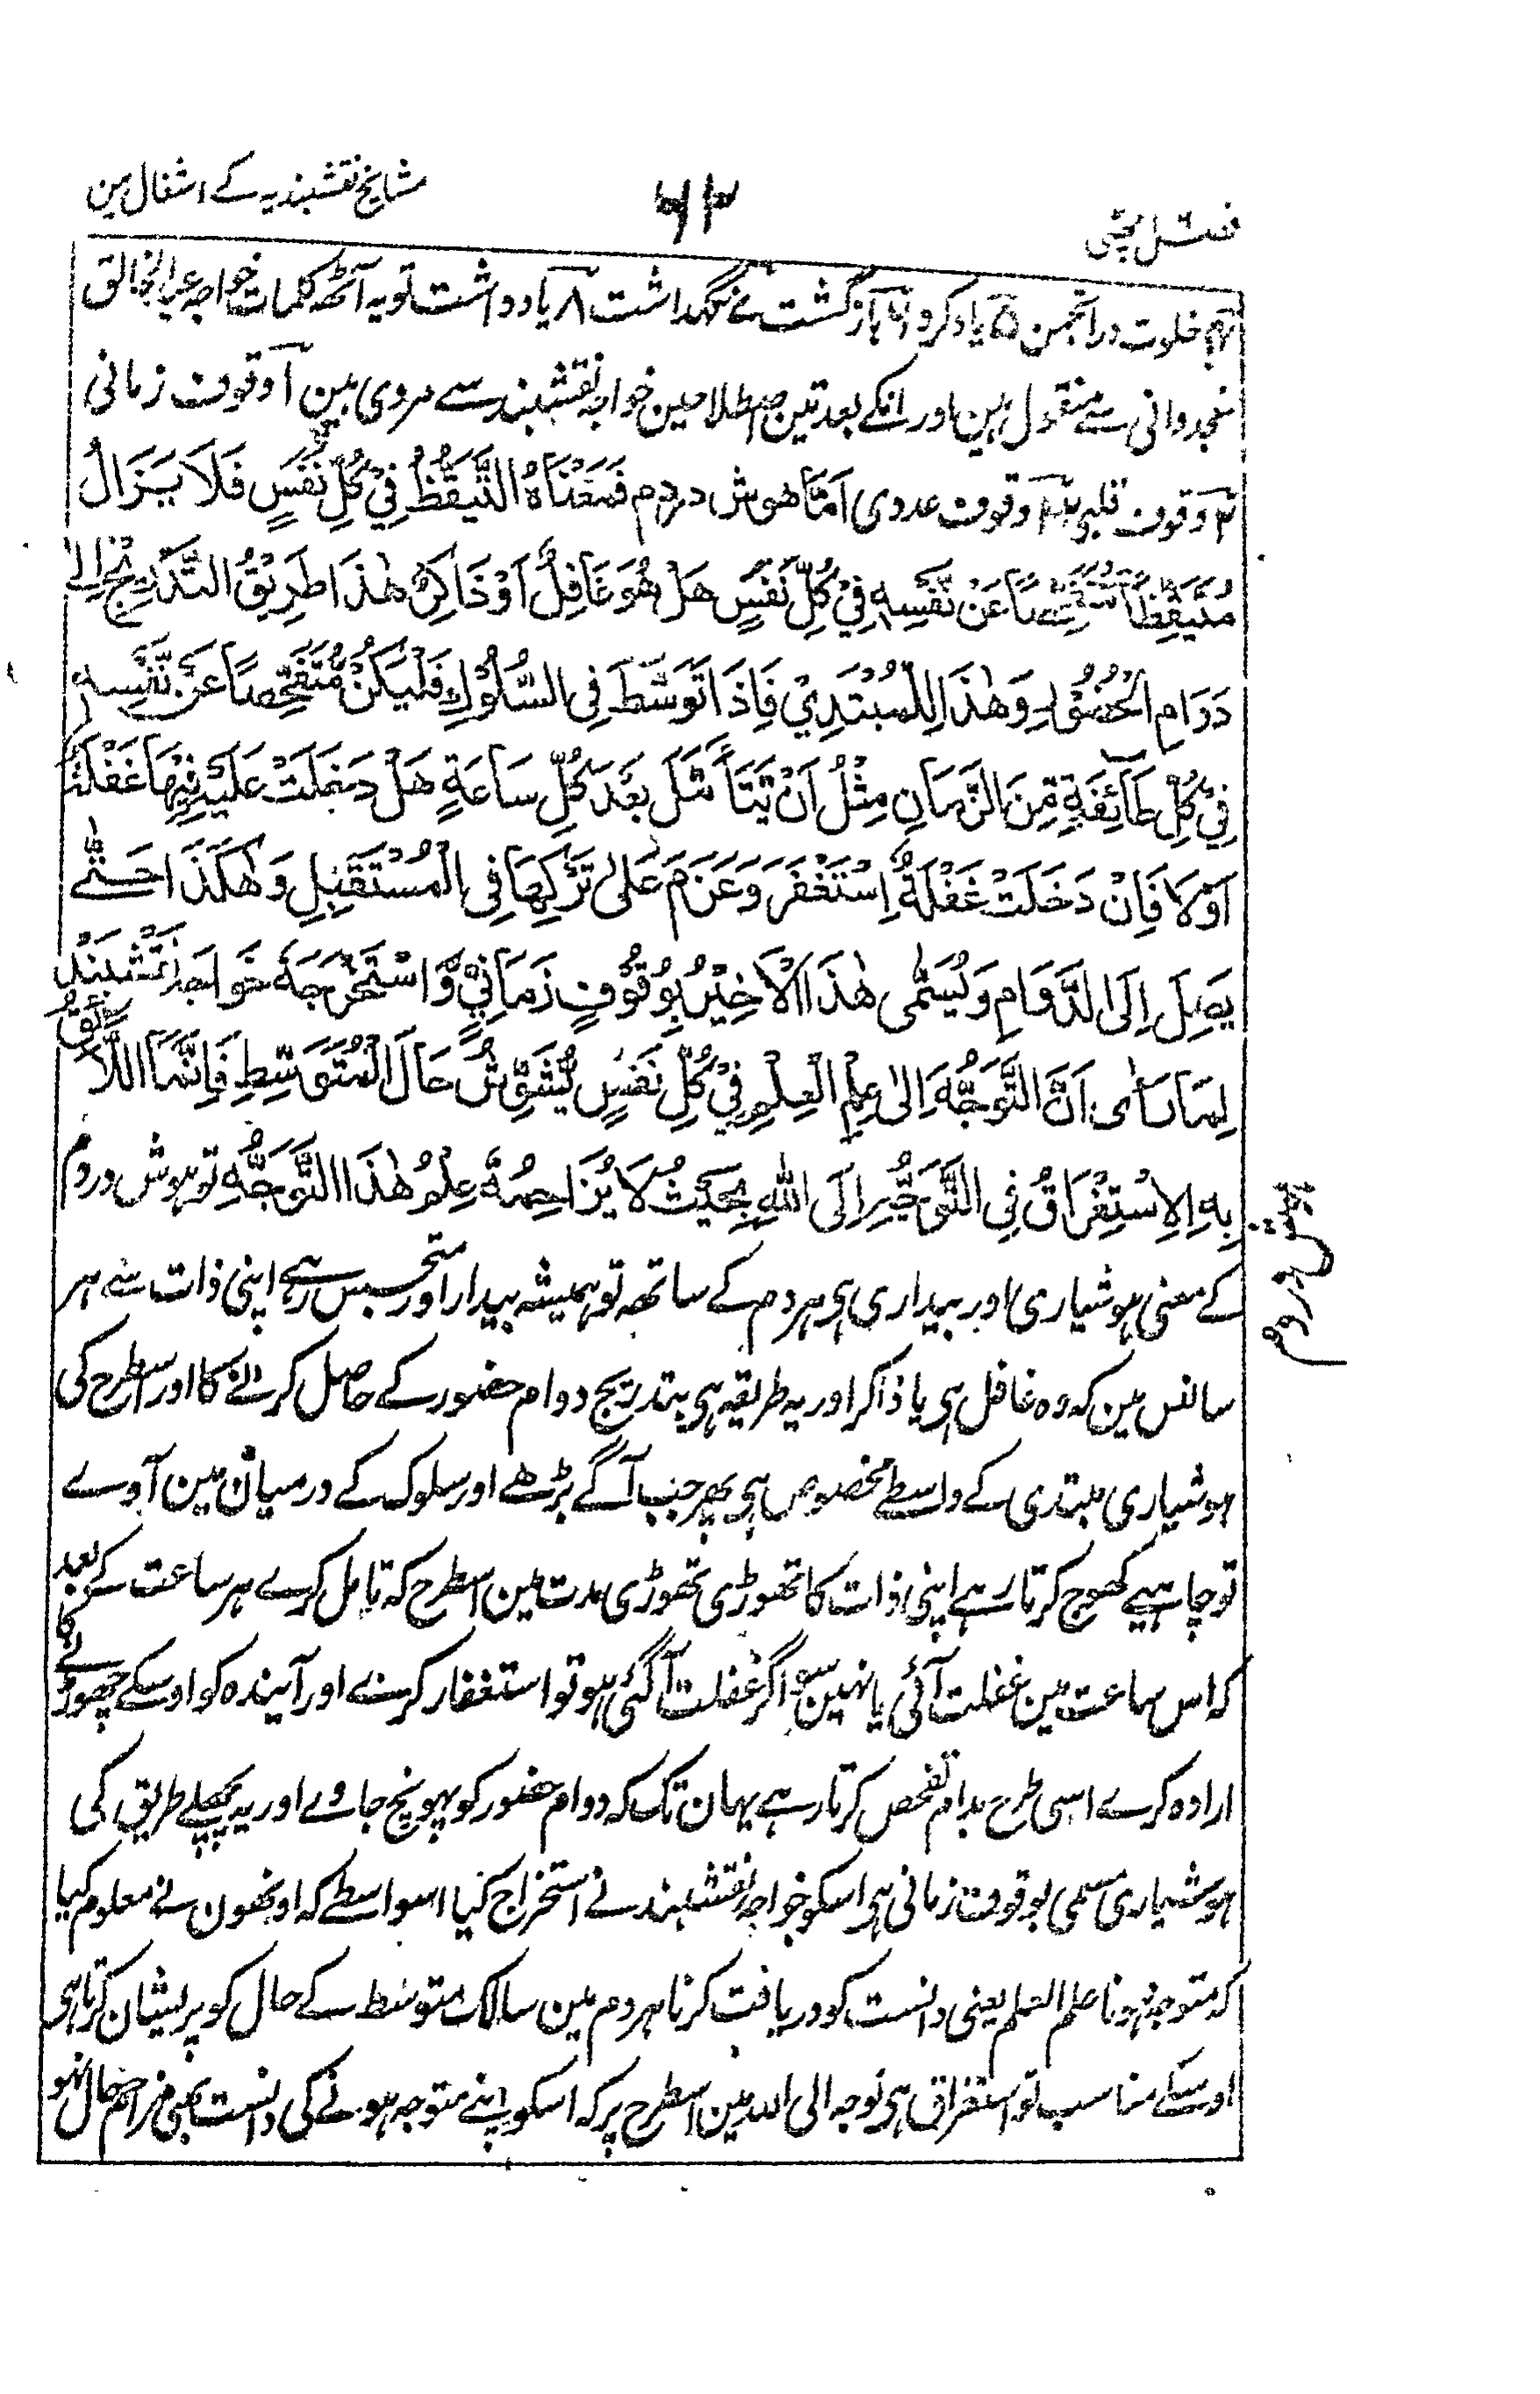 مشایخ نقشبندیہ کے اشغال مین
۶۲
فصل چھٹی
۴ خلوت در انجمن ۵ یاد کرد ۶ باز گشت ۷ نگہداشت ۸ یاد داشت تو یہ آٹھ کلمات خواجہ عبدالخالق
غجدوانی سے منقول ہین اور انکے بعد تین اصطلاحین خواجہ نقشبند سے مروی ہین ۱ وقوف زمانی
۲ وقوف قلبی ۳ وقوف عددی اَمَّا هوش دردم فَمَعْنَاهُ التَّيَقُّظُ فِيْ كُلِّ نَفَسٍ فَلَا يَزَالُ
مُتَيَقِّظًا مُتَفَحِّصًا عَنْ نَفْسِهٖ فِيْ كُلِّ نَفَسٍ هَلْ هُوَ غَافِلٌ اَوْ ذَاكِرٌ هٰذَا طَرِيْقُ التَّدْرِيْجِ اِلٰى
دَوَامِ الْحُضُوْرِ وَهٰذَا لِلْمُبْتَدِيْ فَاِذَا تَوَسَّطَ فِى السُّلُوْكِ فَلْيَكُنْ مُتَفَحِّصًا عَنْ نَّفْسِهٖ
فِيْ كُلِّ طَآئِفَةٍ مِّنَ الزَّمَانِ مِثْلُ اَنْ يَّتَأَمَّلَ بَعْدَ كُلِّ سَاعَةٍ هَلْ دَخَلَتْ عَلَيْهِ فِيْهَا غَفْلَةٌ
اَوْ لَا فَاِنْ دَخَلَتْ غَفْلَةٌ اِسْتَغْفَرَ وَعَزَمَ عَلٰى تَرْكِهَا فِى الْمُسْتَقْبِلِ وَهٰكَذَا حَتّٰى
يَصِلَ اِلَى الدَّوَامِ وَيُسَمّٰى هٰذَا الْاَخِيْرُ بِوُقُوْفٍ زَمَانِيٍّ وَّاسْتَخْرَجَهٗ خَوَاجَه نَقْشْبَنْدْ
لِمَا رَاٰى اَنَّ التَّوَجُّهَ اِلٰى عِلْمِ الْعِلْمِ فِيْ كُلِّ نَفَسٍ يُّشَوِّشُ حَالَ الْمُتَوَسِّطِ فَاِنَّمَا اللَّائِقُ
بِهِ الِاسْتِغْرَاقُ فِى التَّوَجُّهِ اِلَى اللّٰهِ بِحَيْثُ لَا يُزَاحِمُهٗ عِلْمُ هٰذَا التَّوَجُّهِ تو ہوش دردم
کے معنی ہوشیاری اور بیداری ہی ہر دم کے ساتھہ تو ہمیشہ بیدار اور متجسس رہے اپنی ذات سے ہر
سانس مین کہ وہ غافل ہی یا ذاکر اور یہ طریقہ ہی بتدریج دوام حضور کے حاصل کرنے کا اور اسطرح کی
ہوشیاری مبتدی کے واسطے مخصوص ہی پھر جب آگے بڑھے اور سلوک کے درمیان مین آوے
تو چاہیے کھوج کرتا رہے اپنی ذات کا تھوڑی تھوڑی مدت مین اسطرح کہ تامل کرے ہر ساعت کے بعد
کہ اس ساعت مین غفلت آئی یا نہین سو اگر غفلت آگئی ہو تو استغفار کرے اور آیندہ کو اوسکے چھوڑنے کا
ارادہ کرے اسی طرح مدام تفحص کرتا رہے یہان تک کہ دوام حضور کو پہونچ جاوے اور یہ پچھلے طریق کی
ہوشیاری مسمی بوقوف زمانی ہی اسکو خواجہ نقشبند نے استخراج کیا اسواسطے کہ اونھون نے معلوم کیا
کہ متوجہ ہونا علم العلم یعنی دانست کو دریافت کرنا ہر دم مین سالک متوسط کے حال کو پریشان کرتا ہی
اوسکے مناسب تو استغراق ہی توجہ الی اللہ مین اسطرح پر کہ اسکو اپنے متوجہ ہونے کی دانست بھی مزاحم حال نہو
ہوش دردم